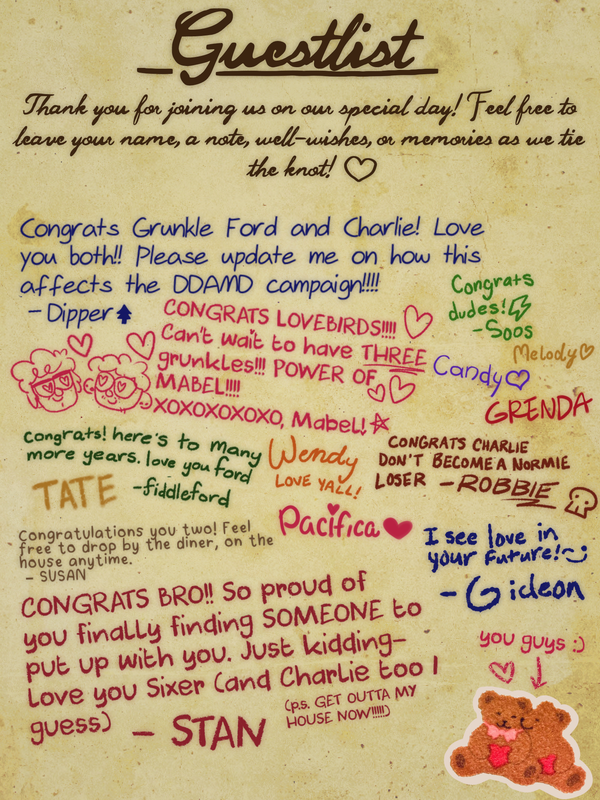 Guestlist
Thank you for joining us on our special day! Feel free to
leave your name, a note, well-wishes, or memories as we tie
the knot! ♡
Congrats Grunkle Ford and Charlie! Love
you both!! Please update me on how this
affects the DDAMD campaign!!!!
- Dipper
Congrats
dudes!
- Soos
Melody♡
CONGRATS LOVEBIRDS!!!!
Can't wait to have THREE
grunkles!!! POWER OF
MABEL!!!!
XOXOXOXOXO, Mabel!
Candy♡
GRENDA
Congrats! here's to many
more years. love you ford
-fiddleford
TATE
Wendy
LOVE YALL!
CONGRATS CHARLIE
DON'T BECOME A NORMIE
LOSER - ROBBIE
Congratulations you two! Feel
free to drop by the diner, on the
house anytime.
- SUSAN
Pacifica
I see love in
your future!
- Gideon
CONGRATS BRO!! So proud of
you finally finding SOMEONE to
put up with you. Just kidding-
Love you Sixer (and Charlie too I
guess) - STAN
(p.s. GET OUTTA MY
HOUSE NOW!!!!!)
you guys :)